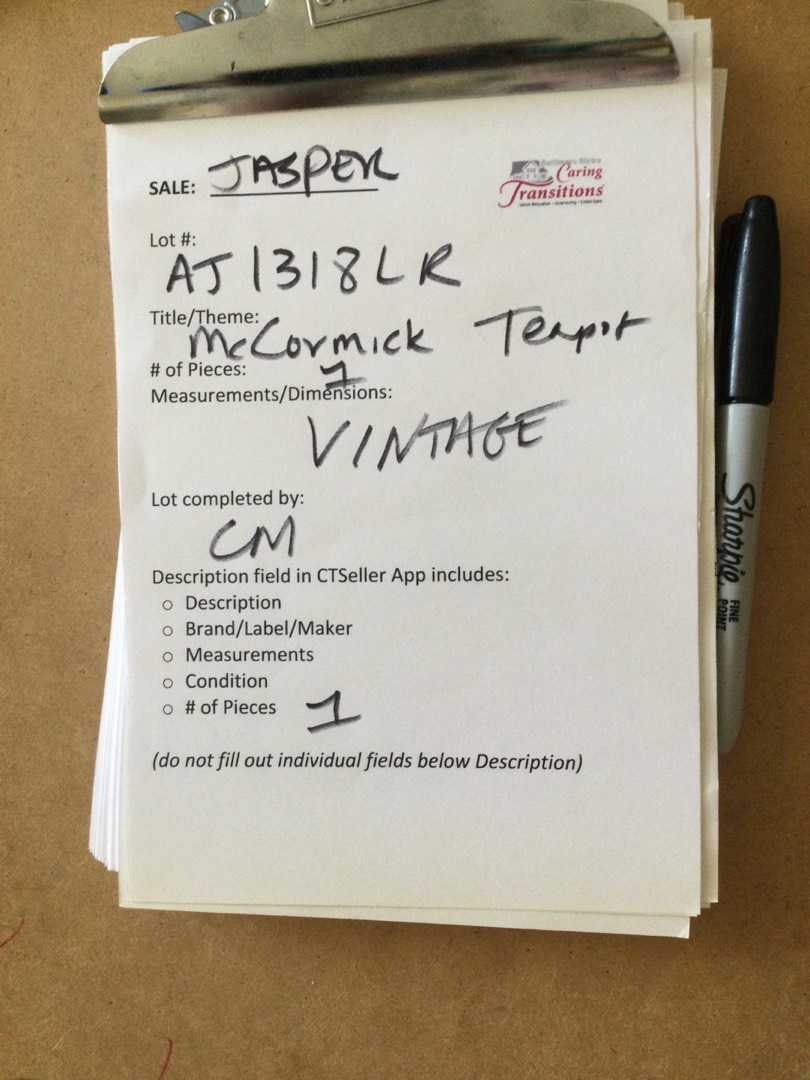 SALE: JASPER
Baltimore Metro
Caring
Transitions
Lot #:
AJ1318LR
Title/Theme:
McCormick Teapot
# of Pieces: 1
Measurements/Dimensions:
VINTAGE
Lot completed by:
CM
Description field in CTSeller App includes:
○ Description
○ Brand/Label/Maker
○ Measurements
○ Condition
○ # of Pieces 1
(do not fill out individual fields below Description)
Sharpie
FINE
POINT